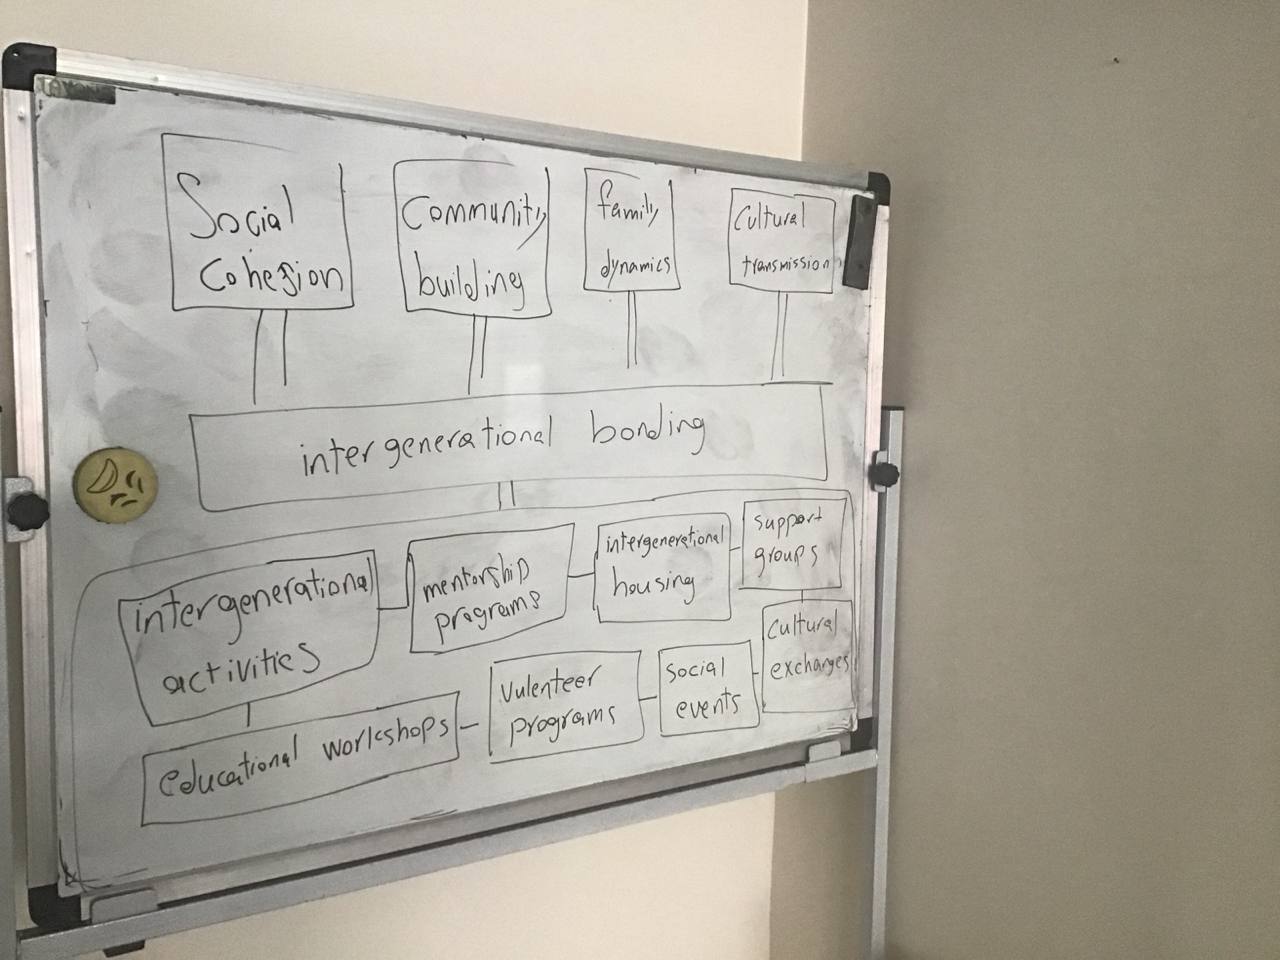 Social
Cohesion
Community
building
family
dynamics
Cultural
transmission
intergenerational bonding
intergenerational
activities
mentorship
programs
intergenerational
housing
support
groups
cultural
exchanges
social
events
vulenteer
programs
educational workshops